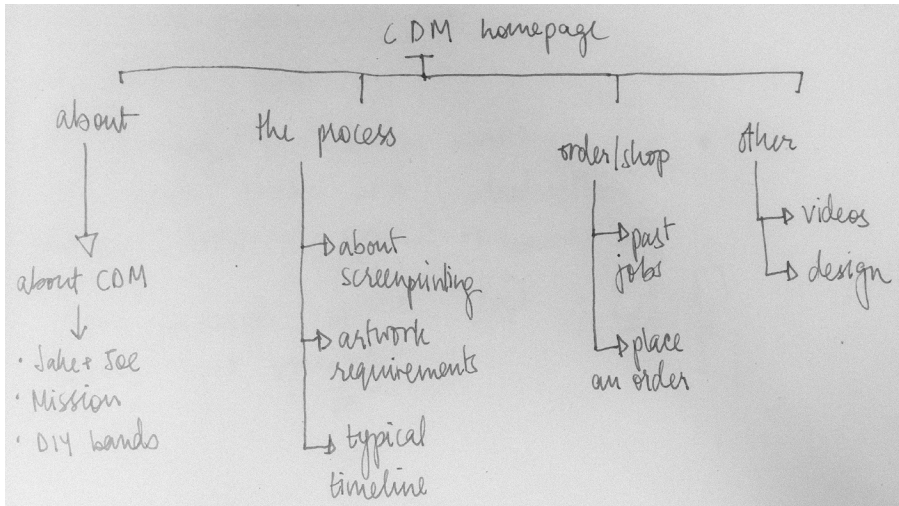 CDM homepage
about
about CDM
· Jake + Joe
· Mission
· DIY bands
the process
about
screenprinting
artwork
requirements
typical
timeline
order/shop
past
jobs
place
an order
other
videos
design